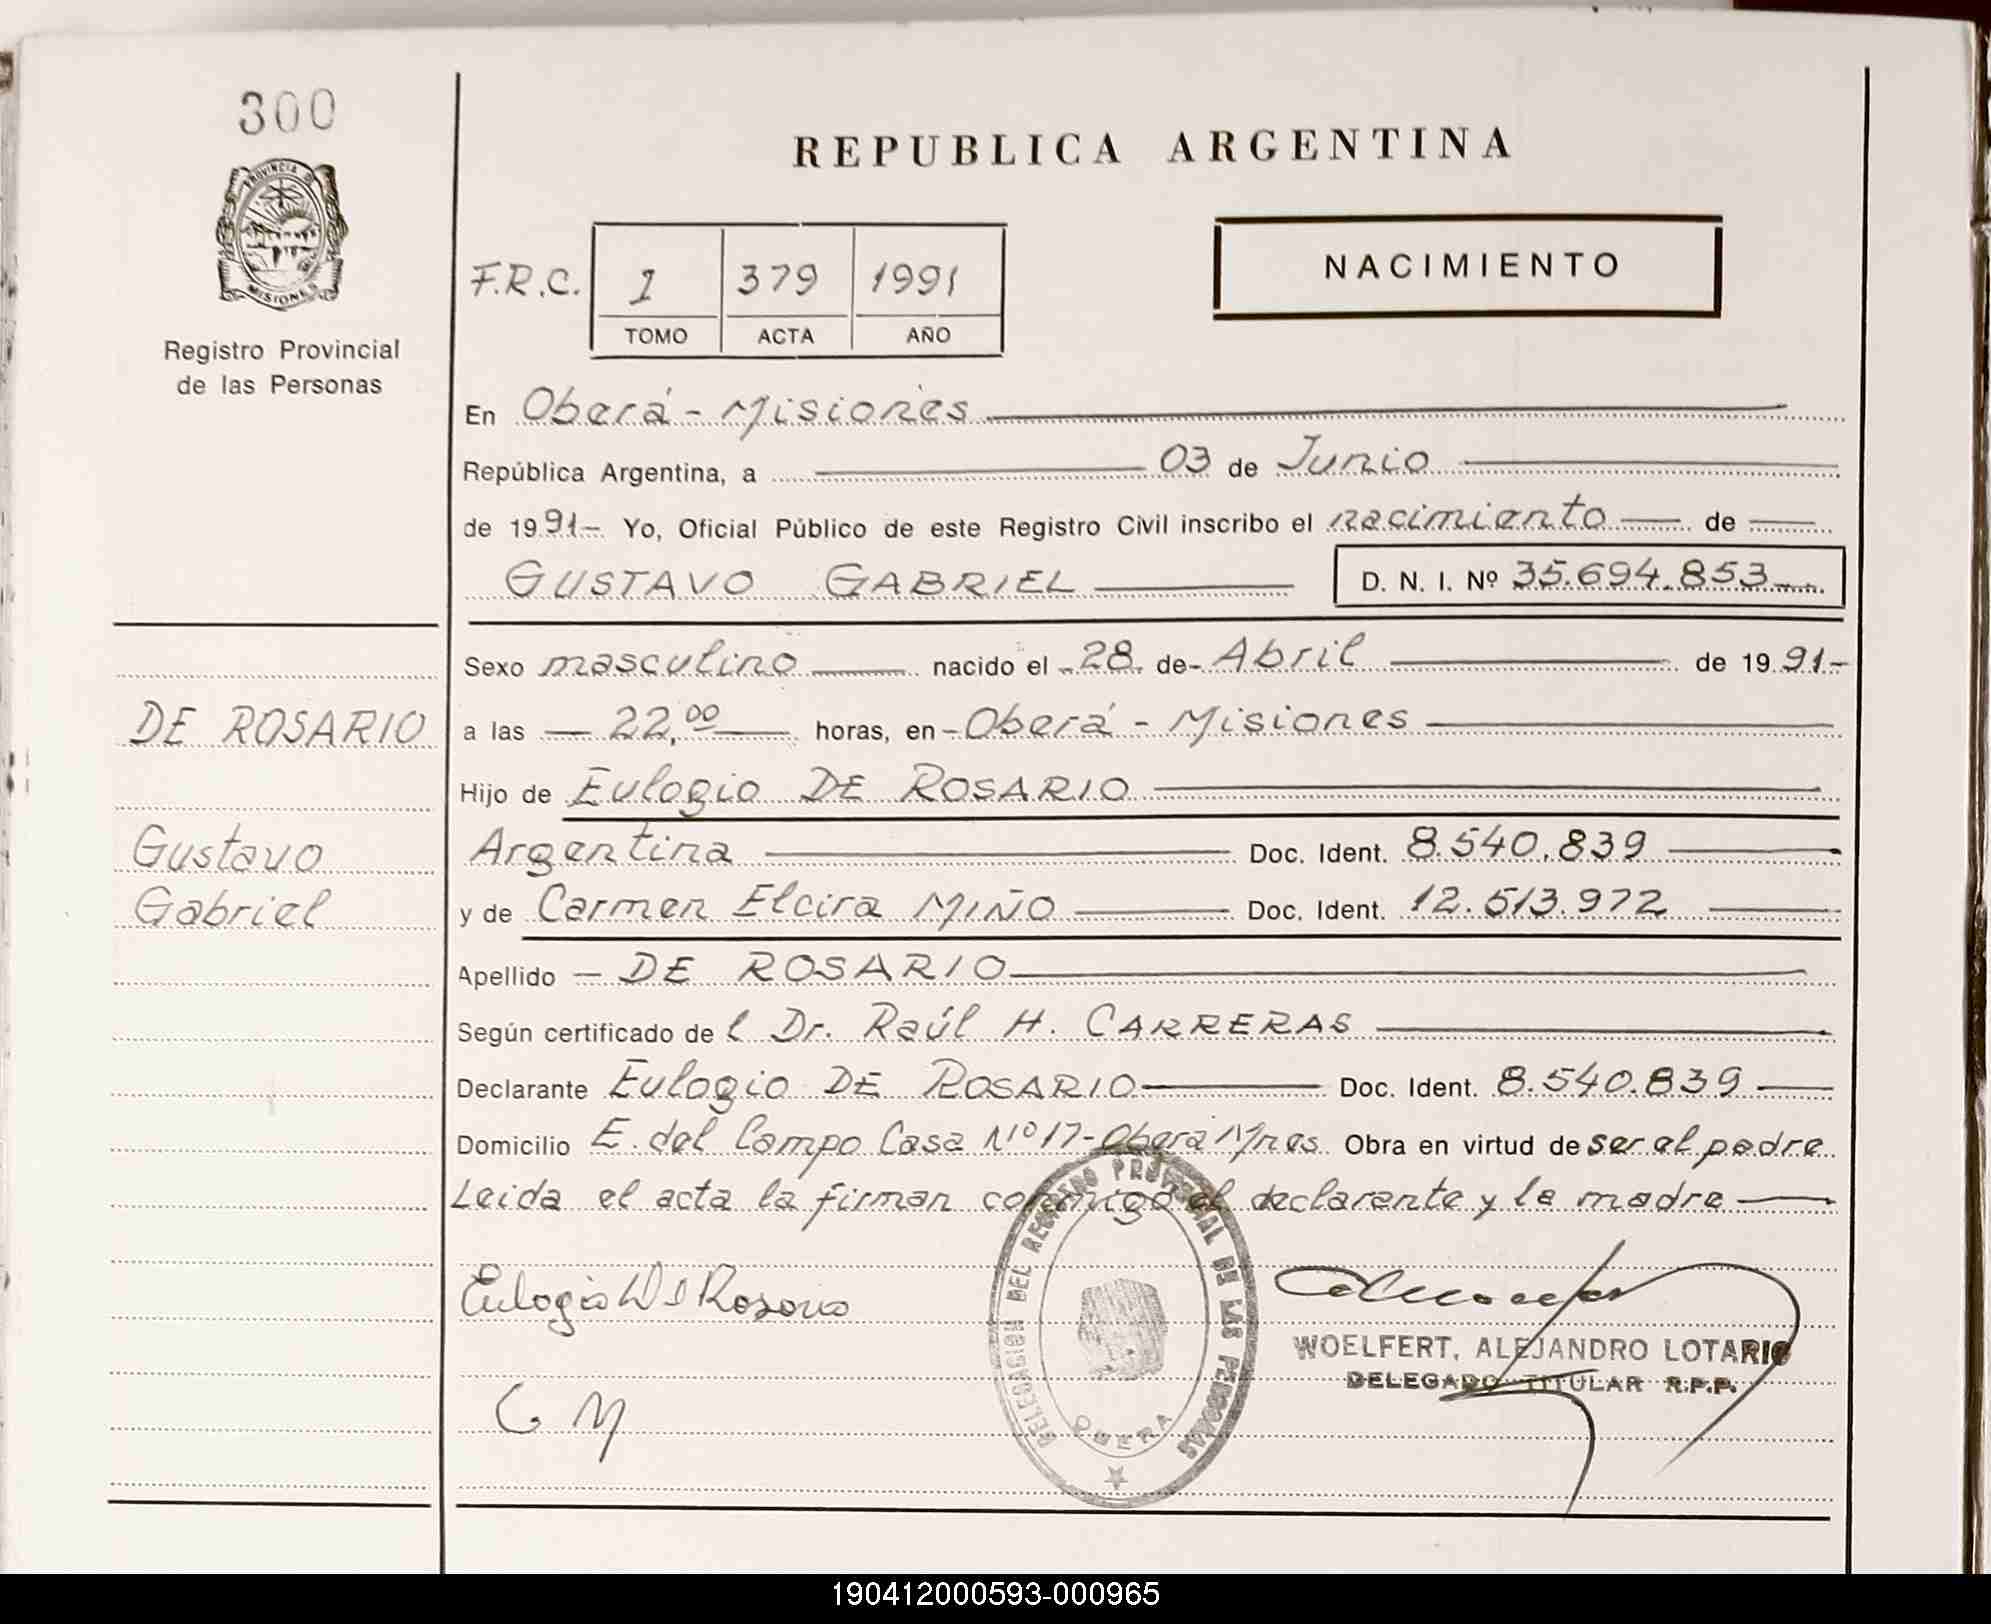 300
PROVINCIA DE
MISIONES
Registro Provincial
de las Personas
REPUBLICA ARGENTINA
F.R.C. 1 379 1991
TOMO ACTA AÑO
NACIMIENTO
En Oberá - Misiones
República Argentina, a 03 de Junio
de 1991- Yo, Oficial Público de este Registro Civil inscribo el nacimiento de
GUSTAVO GABRIEL D. N. I. Nº 35.694.853
Sexo masculino nacido el 28 de Abril de 1991-
DE ROSARIO
a las 22,00 horas, en Oberá - Misiones
Hijo de Eulogio DE ROSARIO
Gustavo
Argentina Doc. Ident. 8.540.839
Gabriel
y de Carmen Elcira MIÑO Doc. Ident. 12.513.972
Apellido DE ROSARIO
Según certificado del Dr. Raúl H. CARRERAS
Declarante Eulogio DE ROSARIO Doc. Ident. 8.540.839
Domicilio E. del Campo Casa Nº 17 - Oberá Mnes. Obra en virtud de ser el padre
Leida el acta la firman conmigo el declarante y la madre
DELEGACION DEL REGISTRO PROVINCIAL DE LAS PERSONAS
OBERA
Eulogio D Rosario
WOELFERT, ALEJANDRO LOTARIO
DELEGADO TITULAR R.P.P.
C M
190412000593-000965